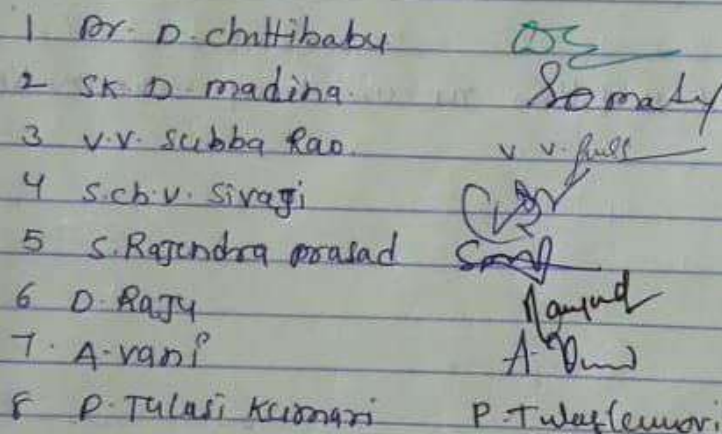 1 Dr. D. chittibabu
2 SK D madina.
3 V.V. Subba Rao.
4 S.ch.v. Sivagi
5 S. Rajendra prasad
6 D. Raju
7. A. vani
8 P. Tulasi Kumari P. Tulasi Kumari